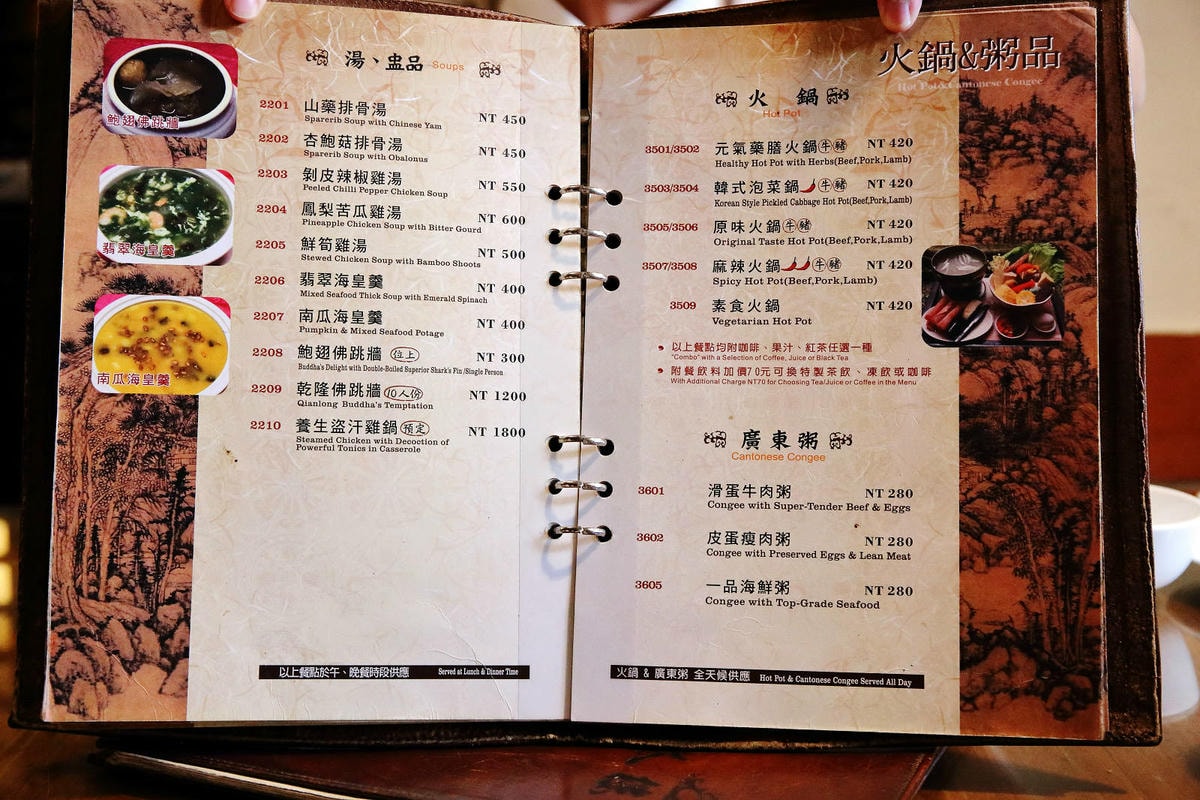 湯、盅品 Soups
2201 山藥排骨湯 NT 450
Sparerib Soup with Chinese Yam
2202 杏鮑菇排骨湯 NT 450
Sparerib Soup with Obalonus
2203 剝皮辣椒雞湯 NT 550
Peeled Chilli Pepper Chicken Soup
2204 鳳梨苦瓜雞湯 NT 600
Pineapple Chicken Soup with Bitter Gourd
2205 鮮筍雞湯 NT 500
Stewed Chicken Soup with Bamboo Shoots
2206 翡翠海皇羹 NT 400
Mixed Seafood Thick Soup with Emerald Spinach
2207 南瓜海皇羹 NT 400
Pumpkin & Mixed Seafood Potage
2208 鮑翅佛跳牆 位上 NT 300
Buddha's Delight with Double-Boiled Superior Shark's Fin/Single Person
2209 乾隆佛跳牆 10人份 NT 1200
Qianlong Buddha's Temptation
2210 養生盜汗雞鍋 預定 NT 1800
Steamed Chicken with Decoction of
Powerful Tonics in Casserole
以上餐點於午、晚餐時段供應 Served at Lunch & Dinner Time
鮑翅佛跳牆
翡翠海皇羹
南瓜海皇羹
火鍋&粥品
Hot Pot & Cantonese Congee
火鍋
Hot Pot
3501/3502 元氣藥膳火鍋 牛 豬 NT 420
Healthy Hot Pot with Herbs(Beef,Pork,Lamb)
3503/3504 韓式泡菜鍋 牛 豬 NT 420
Korean Style Pickled Cabbage Hot Pot(Beef,Pork,Lamb)
3505/3506 原味火鍋 牛 豬 NT 420
Original Taste Hot Pot(Beef,Pork,Lamb)
3507/3508 麻辣火鍋 牛 豬 NT 420
Spicy Hot Pot(Beef,Pork,Lamb)
3509 素食火鍋 NT 420
Vegetarian Hot Pot
以上餐點均附咖啡、果汁、紅茶任選一種
"Combo" with a Selection of Coffee, Juice or Black Tea
附餐飲料加價70元可換特製茶飲、凍飲或咖啡
With Additional Charge NT70 for Choosing Tea/Juice or Coffee in the Menu
廣東粥
Cantonese Congee
3601 滑蛋牛肉粥 NT 280
Congee with Super-Tender Beef & Eggs
3602 皮蛋瘦肉粥 NT 280
Congee with Preserved Eggs & Lean Meat
3605 一品海鮮粥 NT 280
Congee with Top-Grade Seafood
火鍋 & 廣東粥 全天候供應 Hot Pot & Cantonese Congee Served All Day